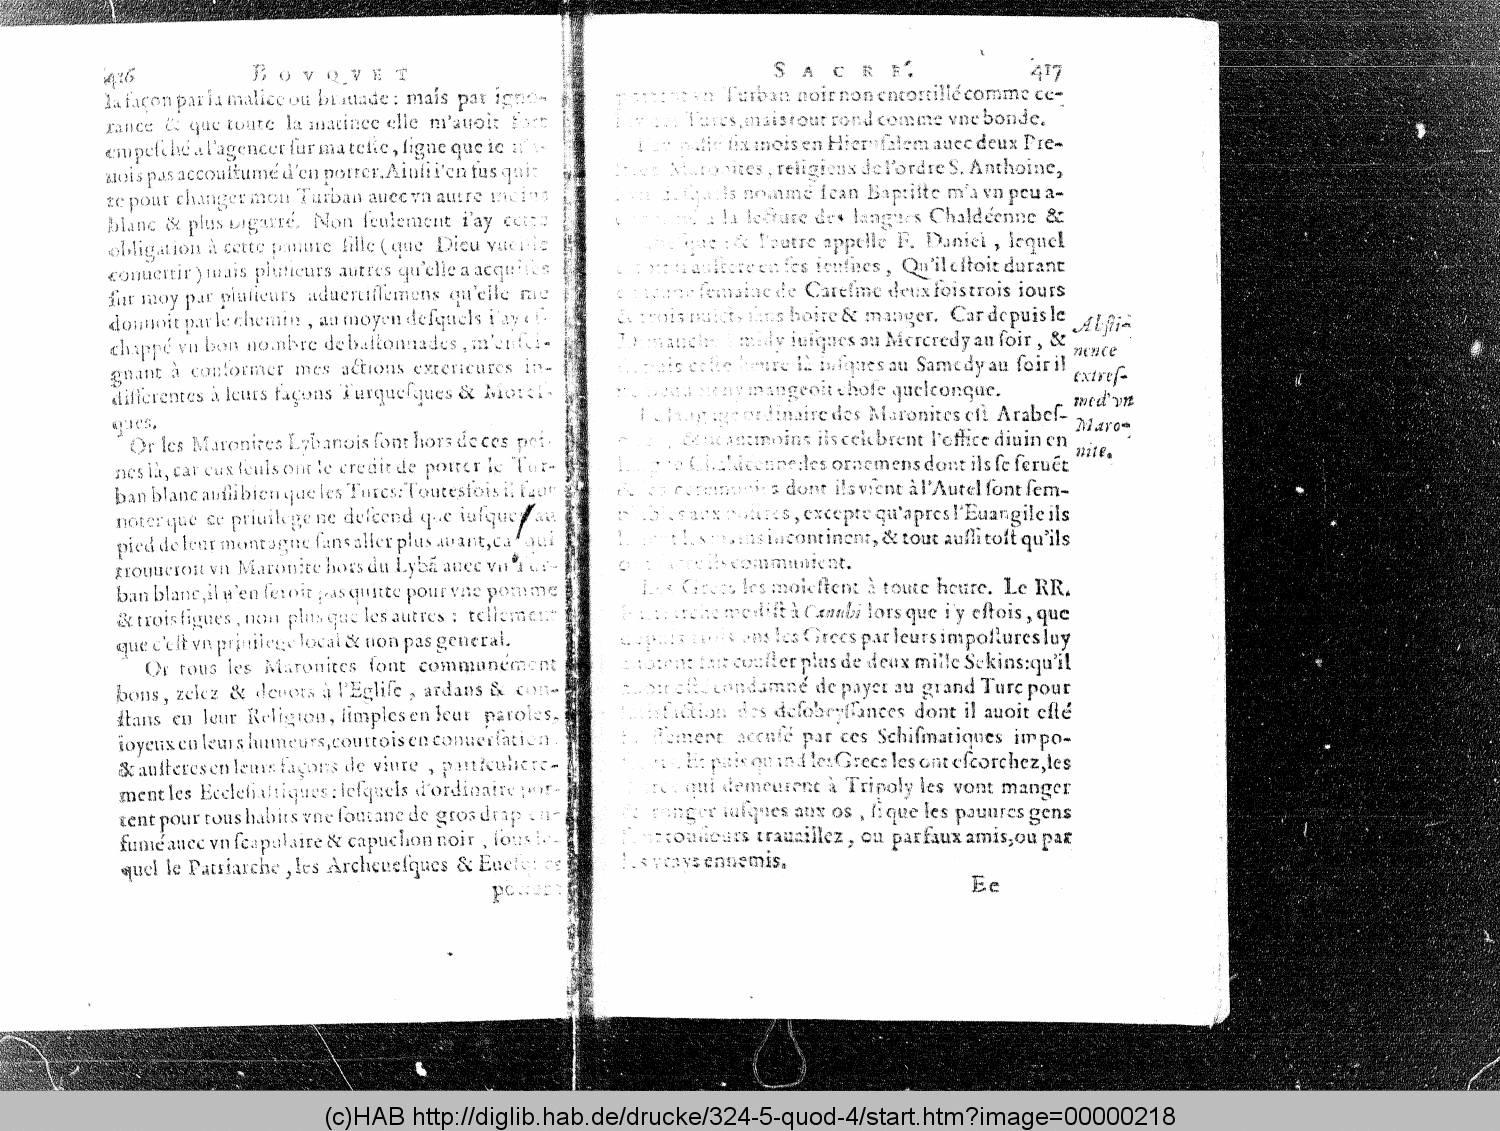 416 BOVQVET
la façon par la malice ou brauade : mais par igno-
rance & que toute la matinee elle m'auoit fort
empesché a l'agencer sur ma teste, signe que ie n'a-
uois pas accoustumé d'en porter. Ainsi i'en fus quit-
te pour changer mon Turban auec vn autre moins
blanc & plus bigarré. Non seulement i'ay cette
obligation à cette pauure fille (que Dieu vueille
conuertir) mais plusieurs autres qu'elle a acquises
sur moy par plusieurs aduertissemens qu'elle me
donnoit par le chemin, au moyen desquels i'ay es-
chappé vn bon nombre de bastonnades, m'ensei-
gnant à conformer mes actions exterieures in-
differentes à leurs façons Turquesques & Mores-
ques.
Or les Maronites Lybanois sont hors de ces pei-
nes là, car eux seuls ont le credit de porter le Tur-
ban blanc aussi bien que les Turcs: Toutesfois il faut
noter que ce priuilege ne descend que iusques au
pied de leur montagne sans aller plus auant, ca qui
trouueroit vn Maronite hors du Lybã auec vn Tur-
ban blanc, il n'en seroit pas quitte pour vne pomme
& trois figues, non plus que les autres : tellement
que c'est vn priuilege local & non pas general.
Or tous les Maronites sont communément
bons, zelez & deuots à l'Eglise, ardans & con-
stans en leur Religion, simples en leur paroles,
ioyeux en leurs humeurs, courtois en conuersation
& austeres en leurs façons de viure, particuliere-
ment les Ecclesiastiques: lesquels d'ordinaire por-
tent pour tous habits vne soutane de gros drap en-
fumé auec vn scapulaire & capuchon noir, sous le-
quel le Patriarche, les Archeuesques & Euesques
portent
SACRÉ. 417
portent vn Turban noir non entortillé comme ce-
luy des Turcs, mais tout rond comme vne bonde.
I'ay passé six mois en Hierusalem auec deux Pre-
stres Maronites, religieux de l'ordre S. Anthoine,
nommé Iean Baptiste m'a vn peu a-
la lecture des langues Chaldéenne &
& l'autre appellé F. Daniel, lequel
estoit si austere en ses ieusnes, Qu'il estoit durant
semaine de Caresme deux fois trois iours
& trois nuicts sans boire & manger. Car depuis le
Dimanche à midy iusques au Mercredy au soir, &
depuis ceste heure là iusques au Samedy au soir il
mangeoit chose quelconque.
Absti-
nence
extres-
me d'vn
Maro-
nite.
Le langage ordinaire des Maronites est Arabes-
que, neantmoins ils celebrent l'office diuin en
langue Chaldéenne: les ornemens dont ils se seruẽt
& les ceremonies dont ils vsent à l'Autel sont sem-
blables aux nostres, excepté qu'apres l'Euangile ils
lauent les mains incontinent, & tout aussi tost qu'ils
communient.
Les Grecs les molestent à toute heure. Le RR.
Patriarche me dist à Canubi lors que i'y estois, que
depuis trois ans les Grecs par leurs impostures luy
auoient fait couster plus de deux mille Sekins: qu'il
auoit esté condamné de payer au grand Turc pour
satisfaction des desobeyssances dont il auoit esté
faussement accusé par ces Schismatiques impo-
Et puis quand les Grecs les ont escorchez, les
Turcs qui demeurent à Tripoly les vont manger
& ronger iusques aux os, si que les pauures gens
sont tousiours trauaillez, ou par faux amis, ou par
les vrays ennemis.
Ee
(c)HAB http://diglib.hab.de/drucke/324-5-quod-4/start.htm?image=00000218